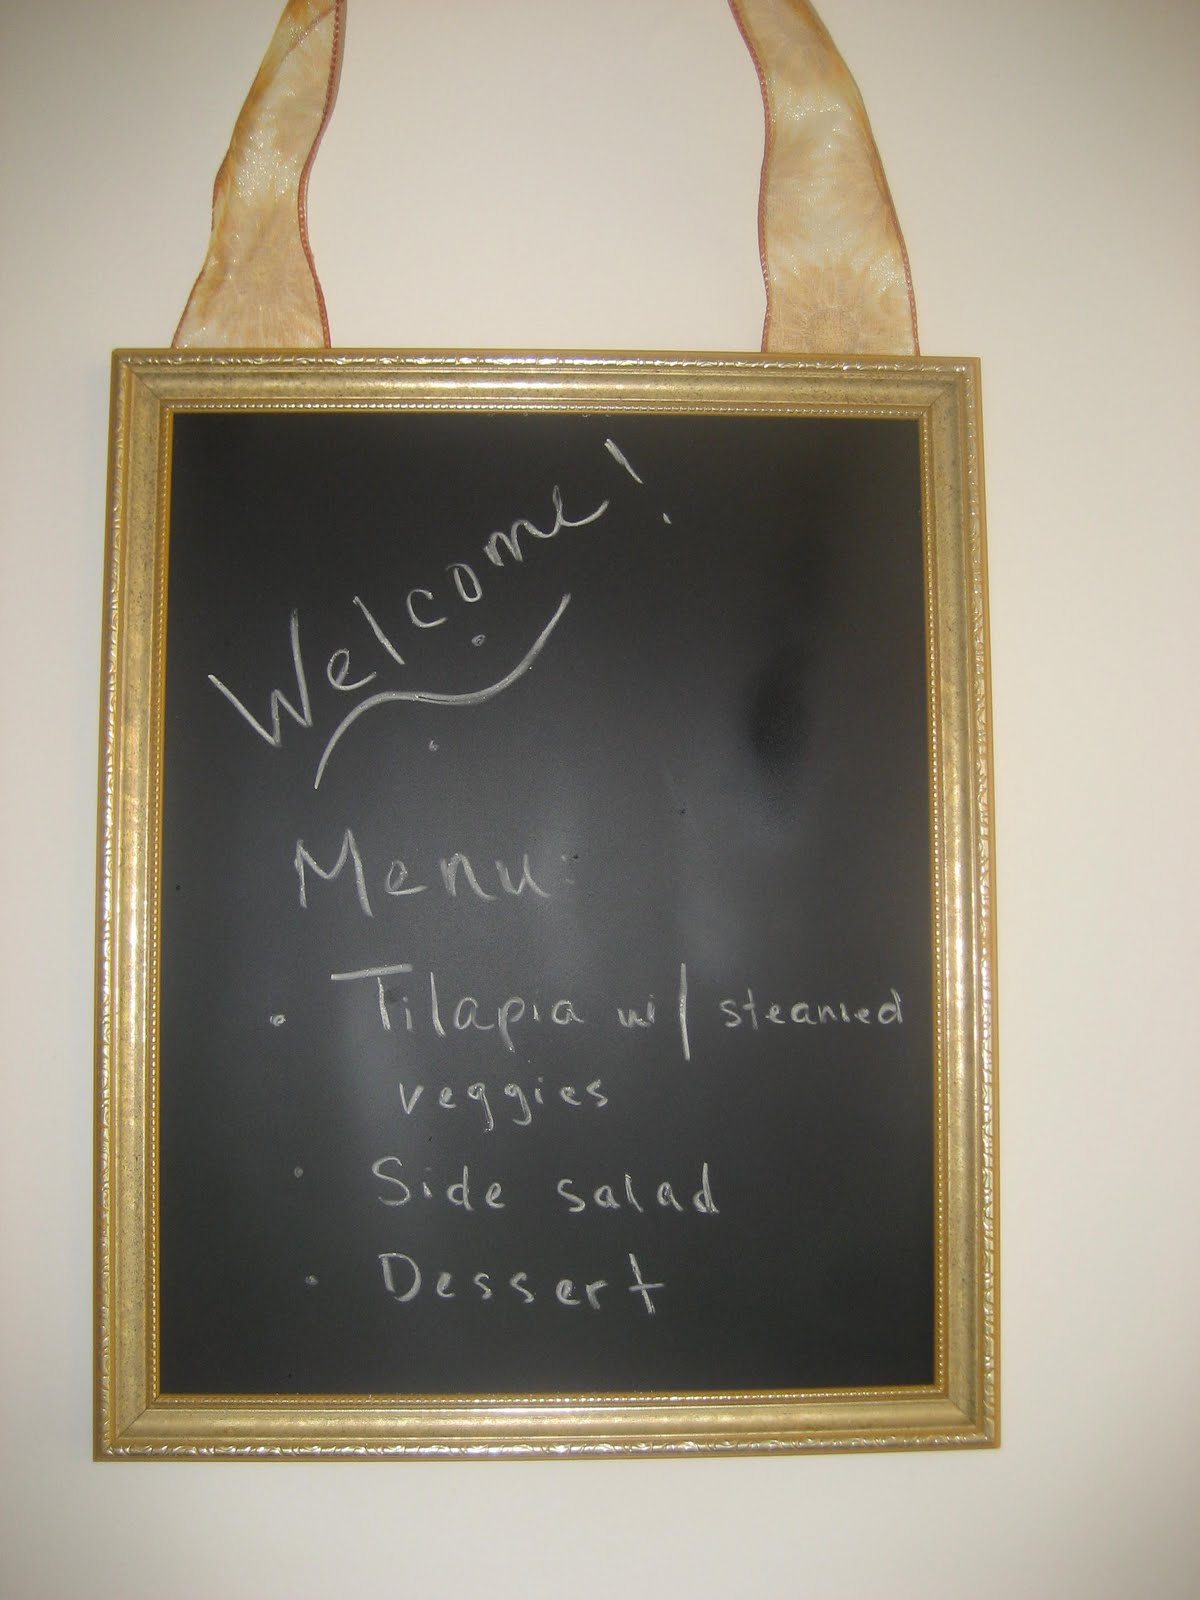 Welcome!
Menu:
· Tilapia w/ steamed
veggies
· Side salad
· Dessert